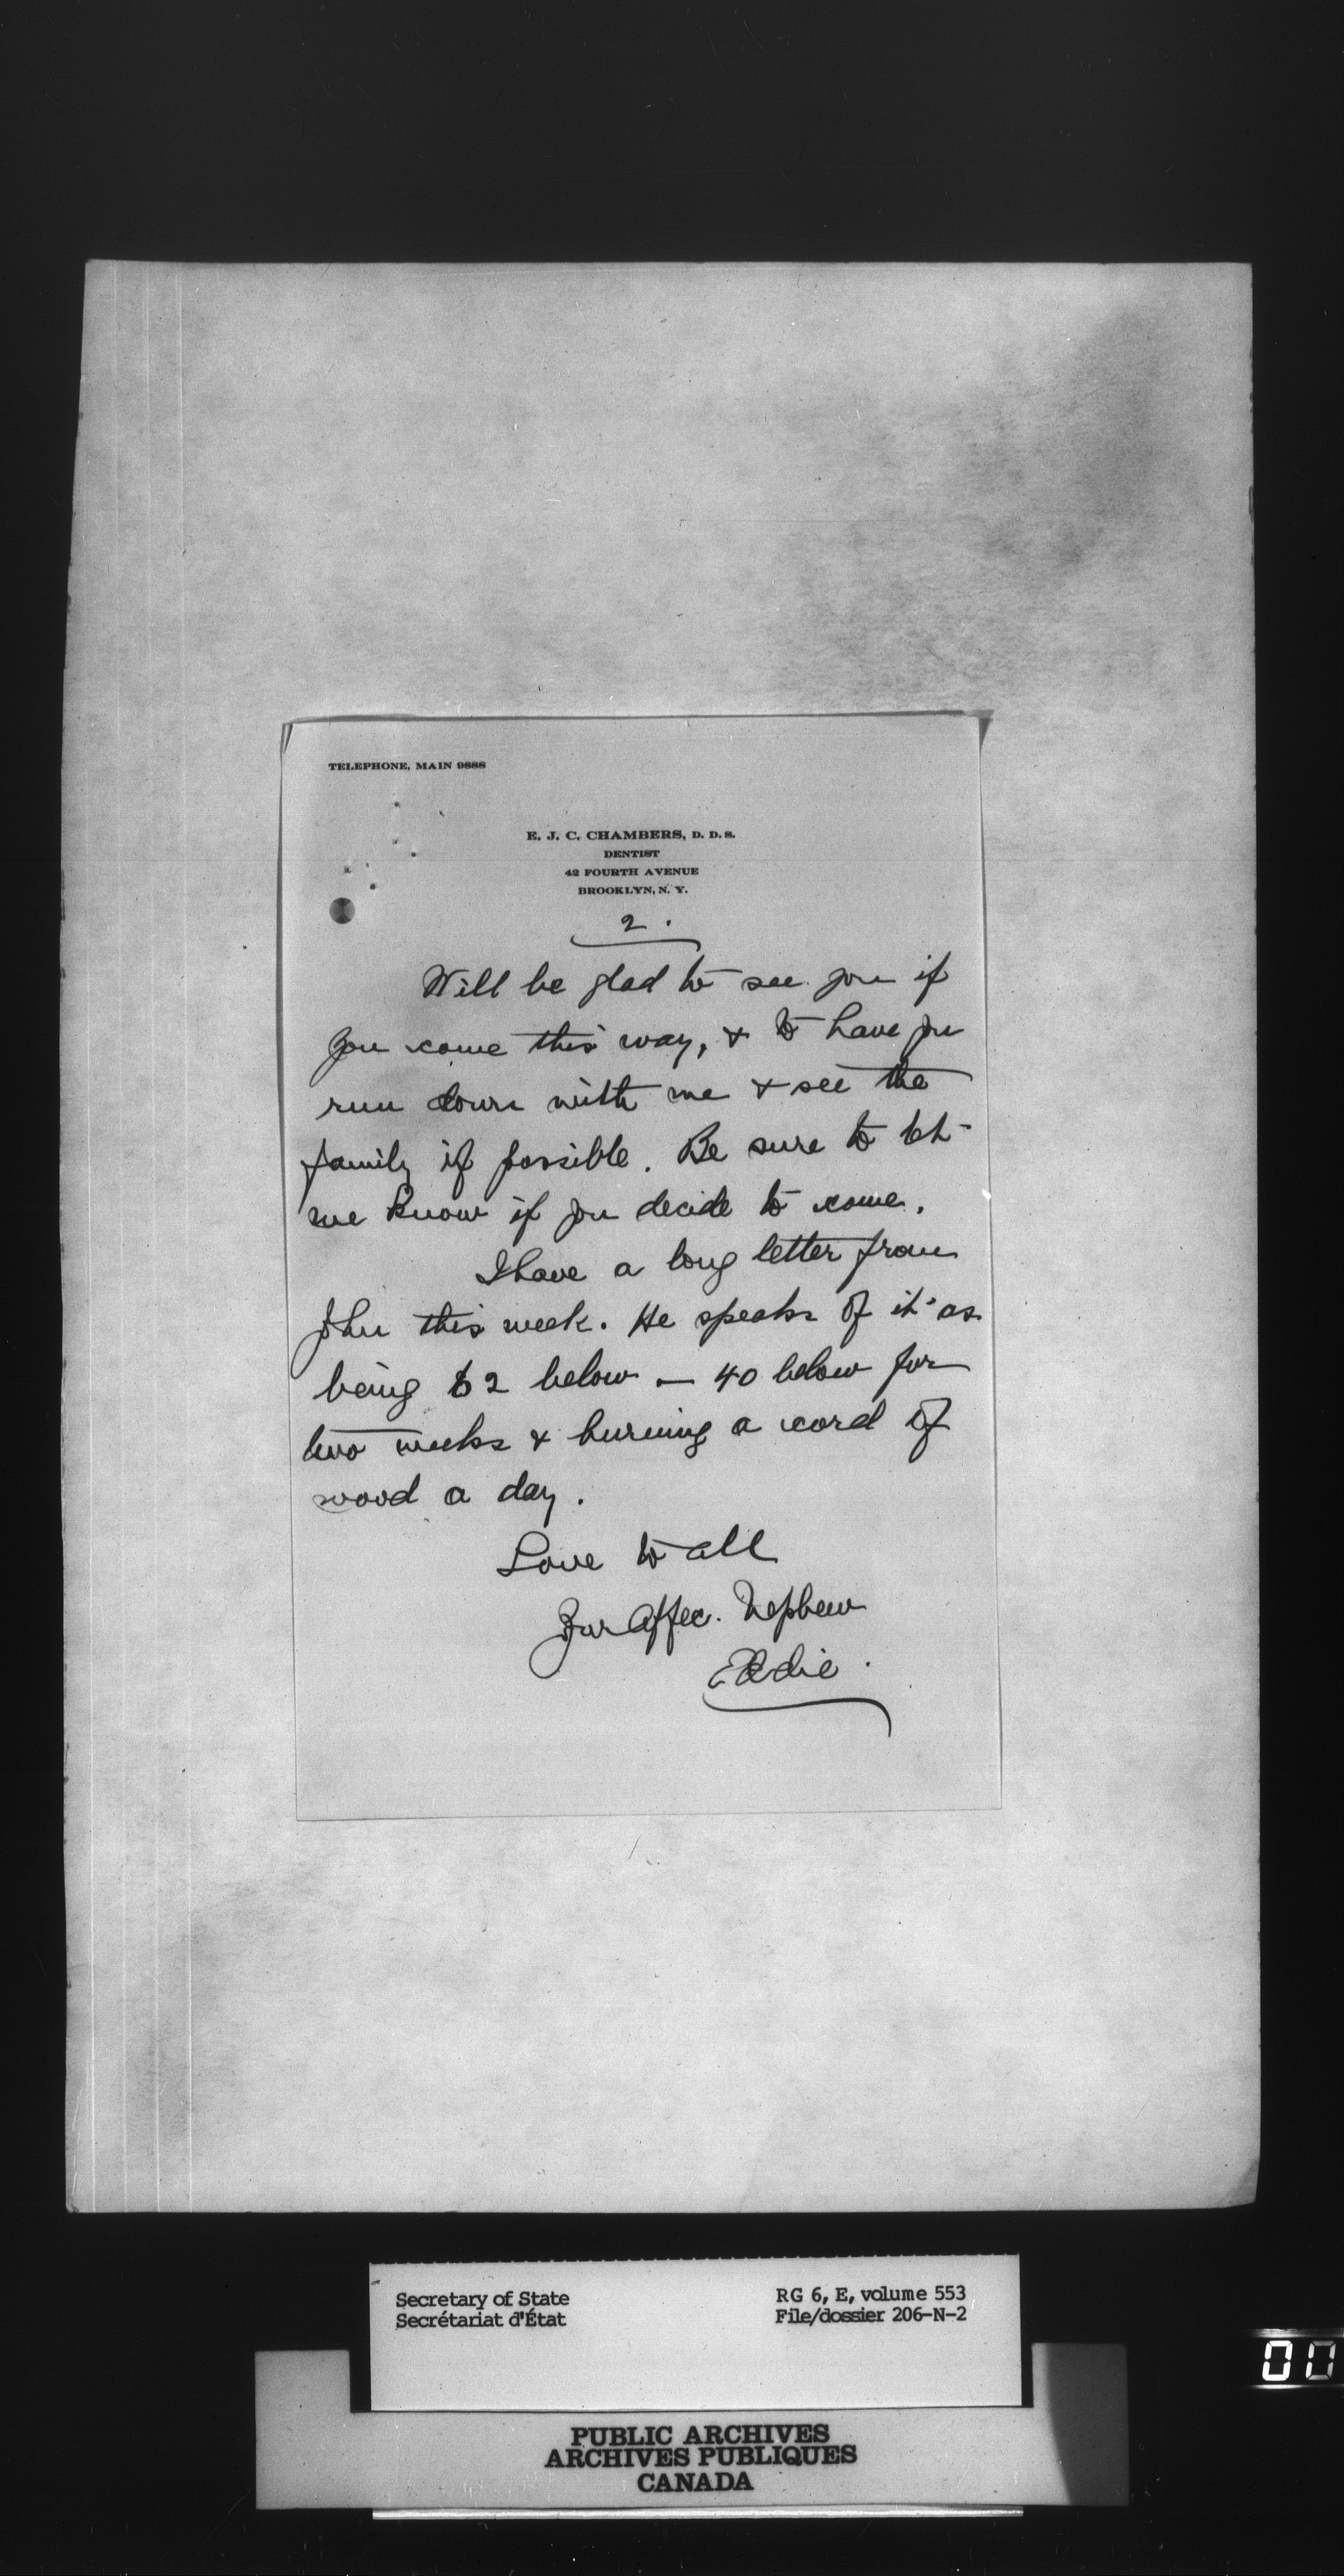 TELEPHONE, MAIN 9888
E. J. C. CHAMBERS, D. D. S.
DENTIST
42 FOURTH AVENUE
BROOKLYN, N. Y.
2.
Will be glad to see you if
you come this way, & to have you
run down with me & see the
family if possible. Be sure to let
me know if you decide to come.
I have a long letter from
John this week. He speaks of it as
being 62 below — 40 below for
two weeks & burning a cord of
wood a day.
Love to all
Your Affec. Nephew
Eddie.
Secretary of State
Secrétariat d'État
RG 6, E, volume 553
File/dossier 206-N-2
00
PUBLIC ARCHIVES
ARCHIVES PUBLIQUES
CANADA